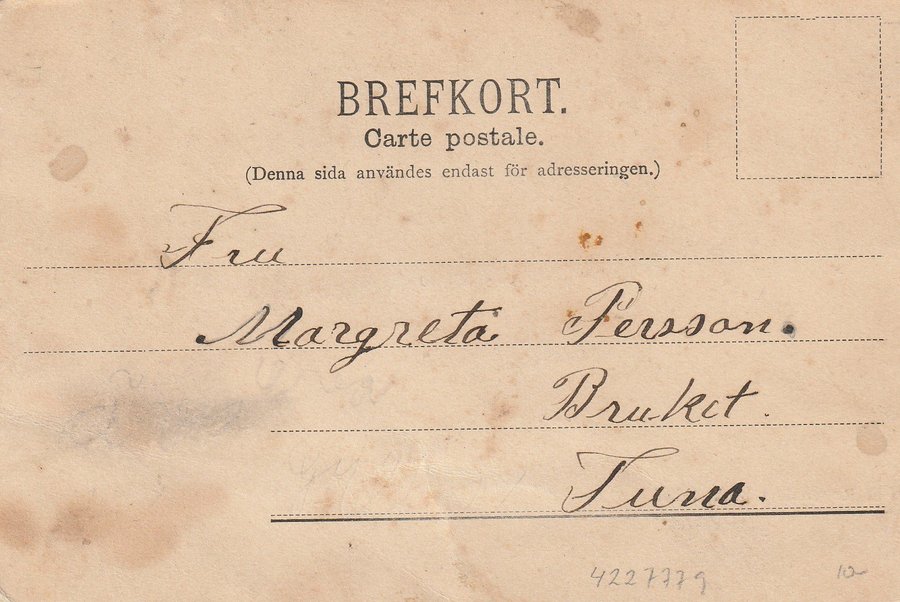 BREFKORT.
Carte postale.
(Denna sida användes endast för adresseringen.)
Fru
Margreta Persson.
Bruket.
Tuna.
4227779
10-